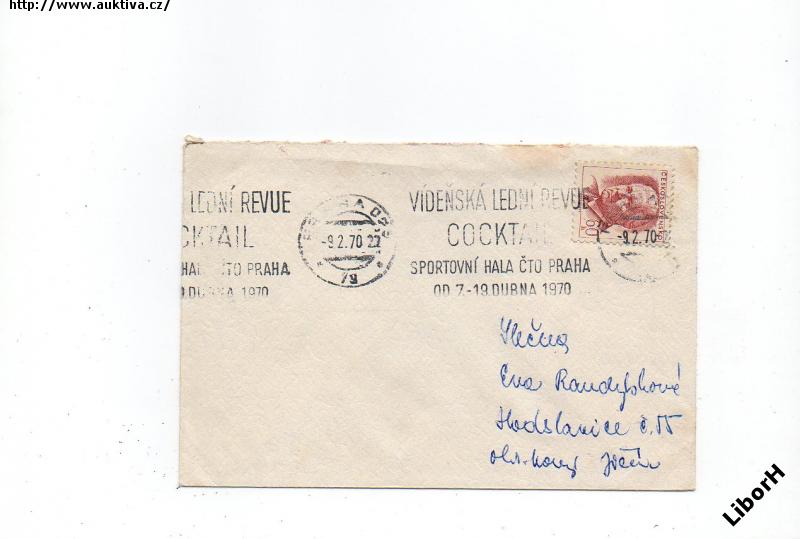 http://www.auktiva.cz/
LEDNÍ REVUE
CKTAIL
HALA ČTO PRAHA
DUBNA 1970
-9.2.70 22
VÍDEŇSKÁ LEDNÍ REVUE
COCKTAIL
SPORTOVNÍ HALA ČTO PRAHA
OD 7.-19.DUBNA 1970
ČESKOSLOVENSKO
60
-9.2.70
Slečna
Eva
Hodslavice č.
okr. Nový Jičín
LiborH